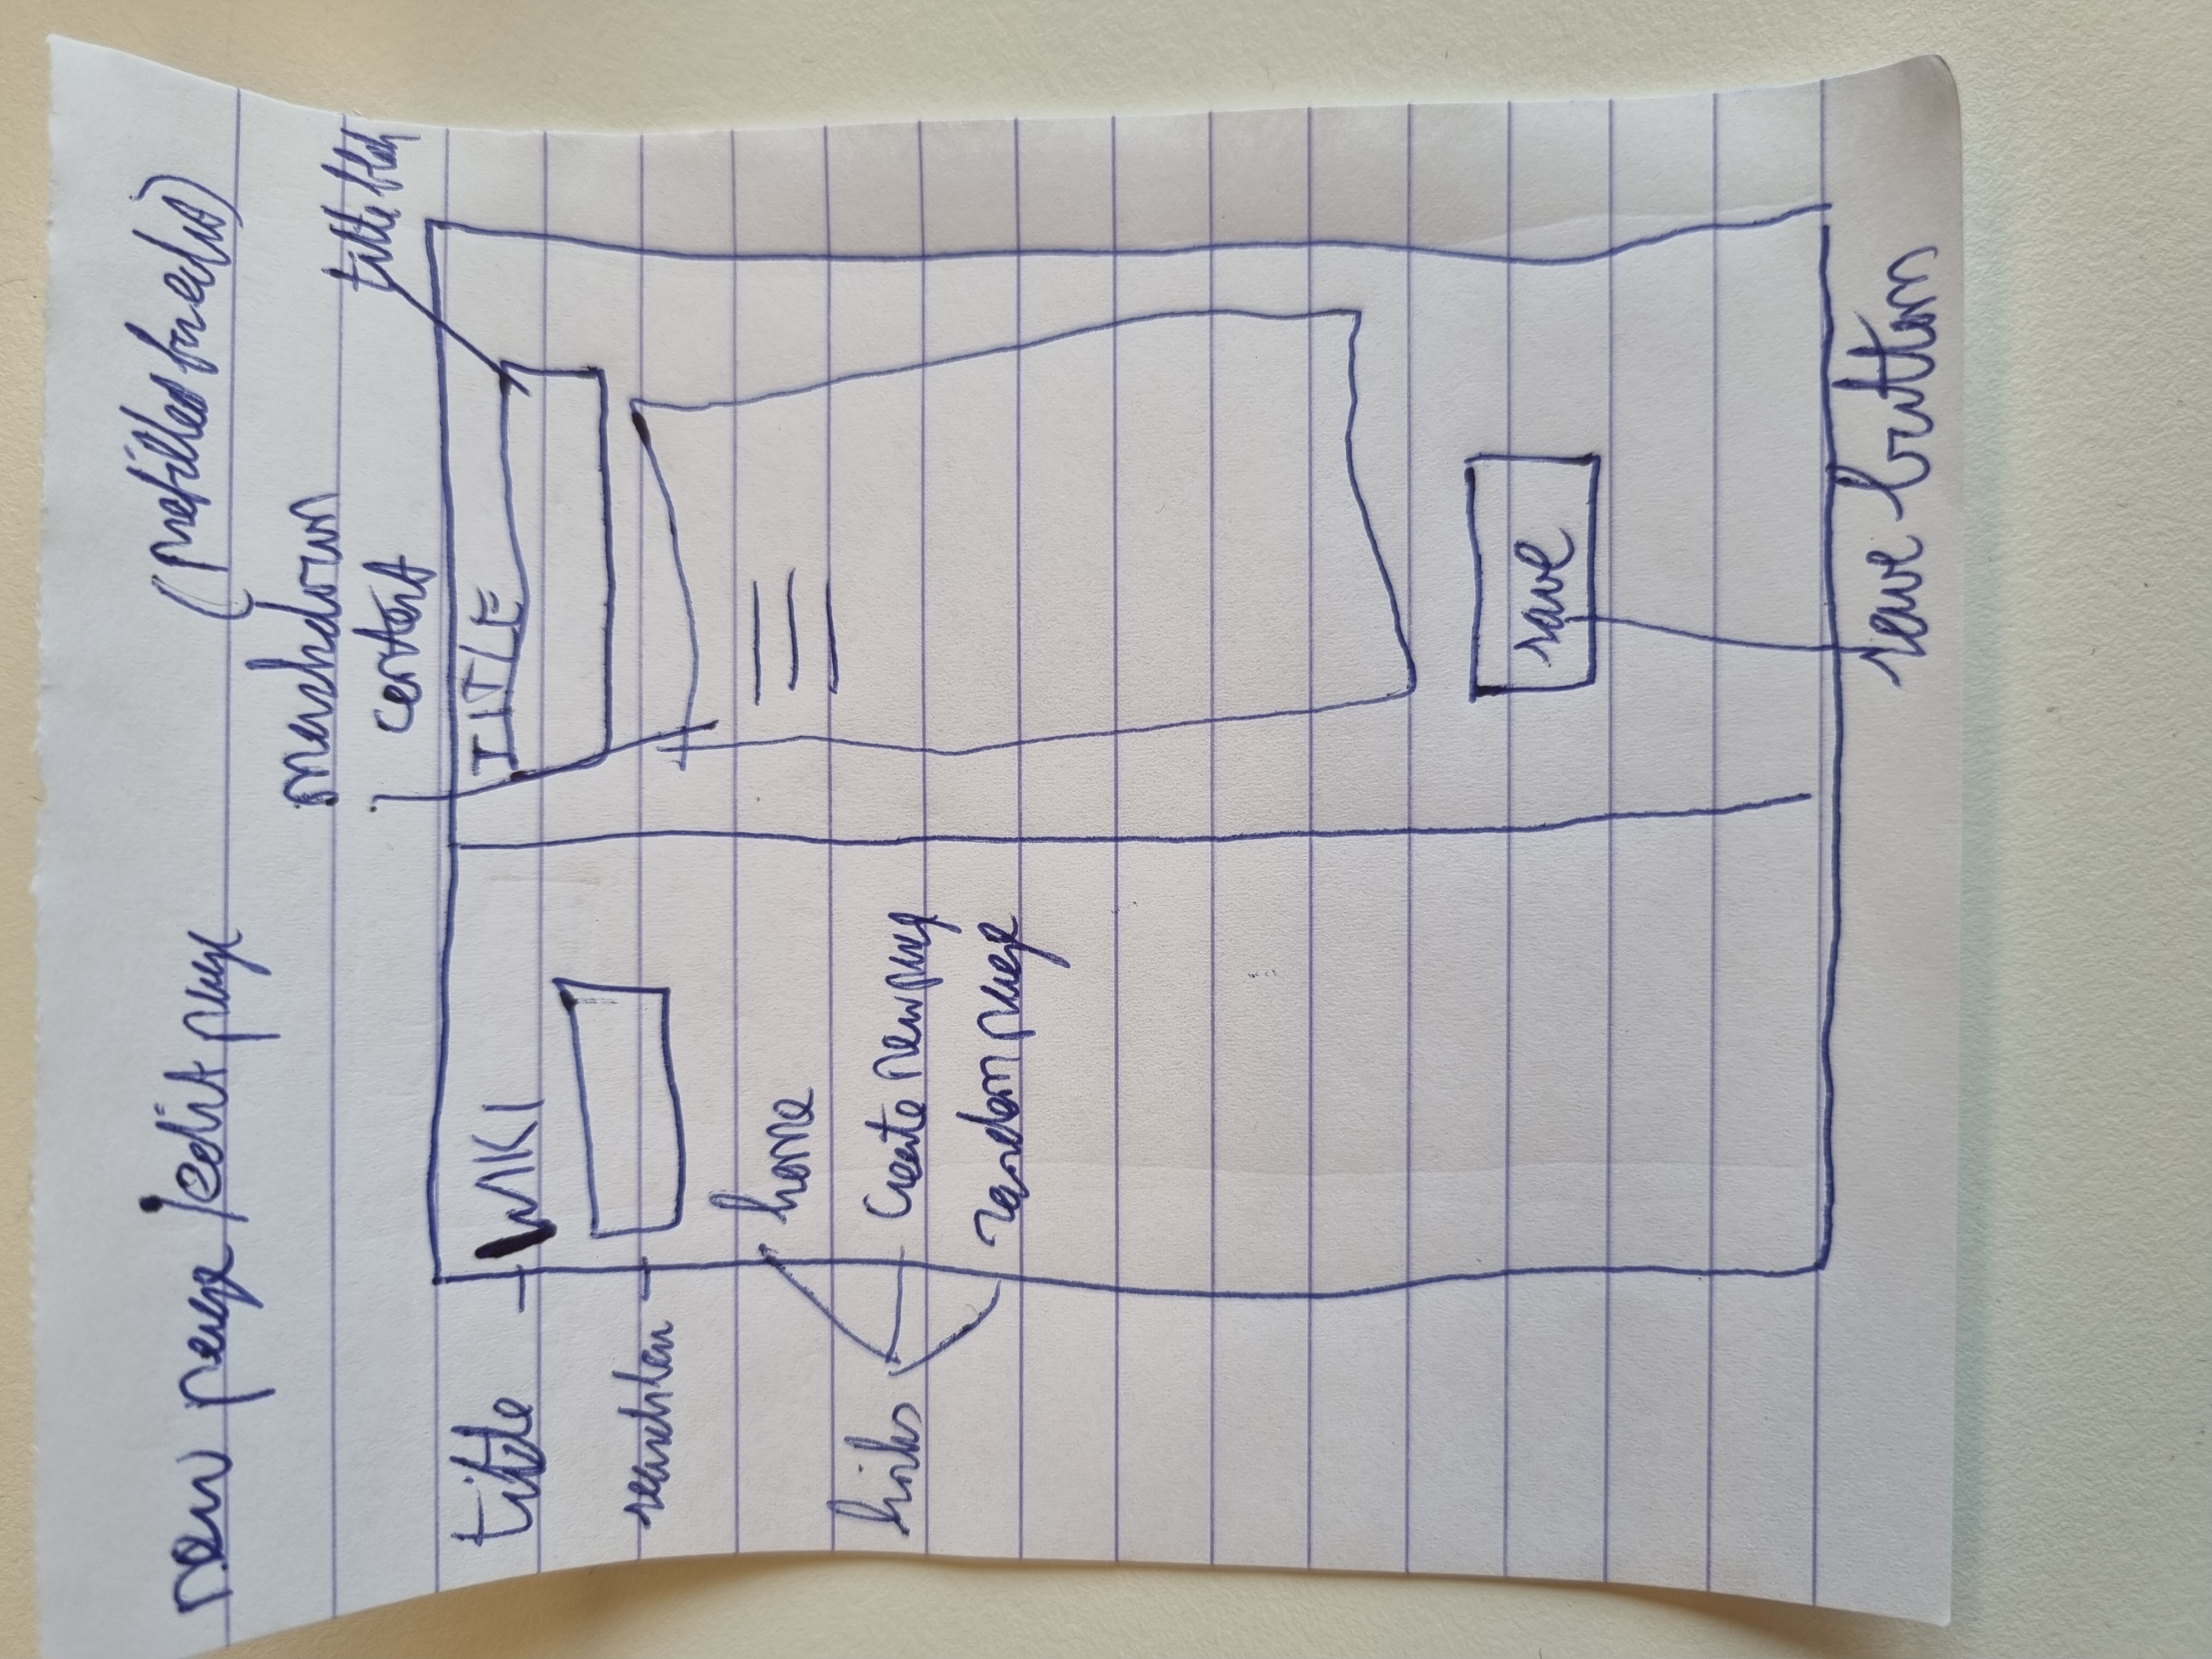 new page / edit page
(prefilled for edit)
markdown
content
title
title
WIKI
TITLE
searchbar
home
links
Create new page
random page
save
save button